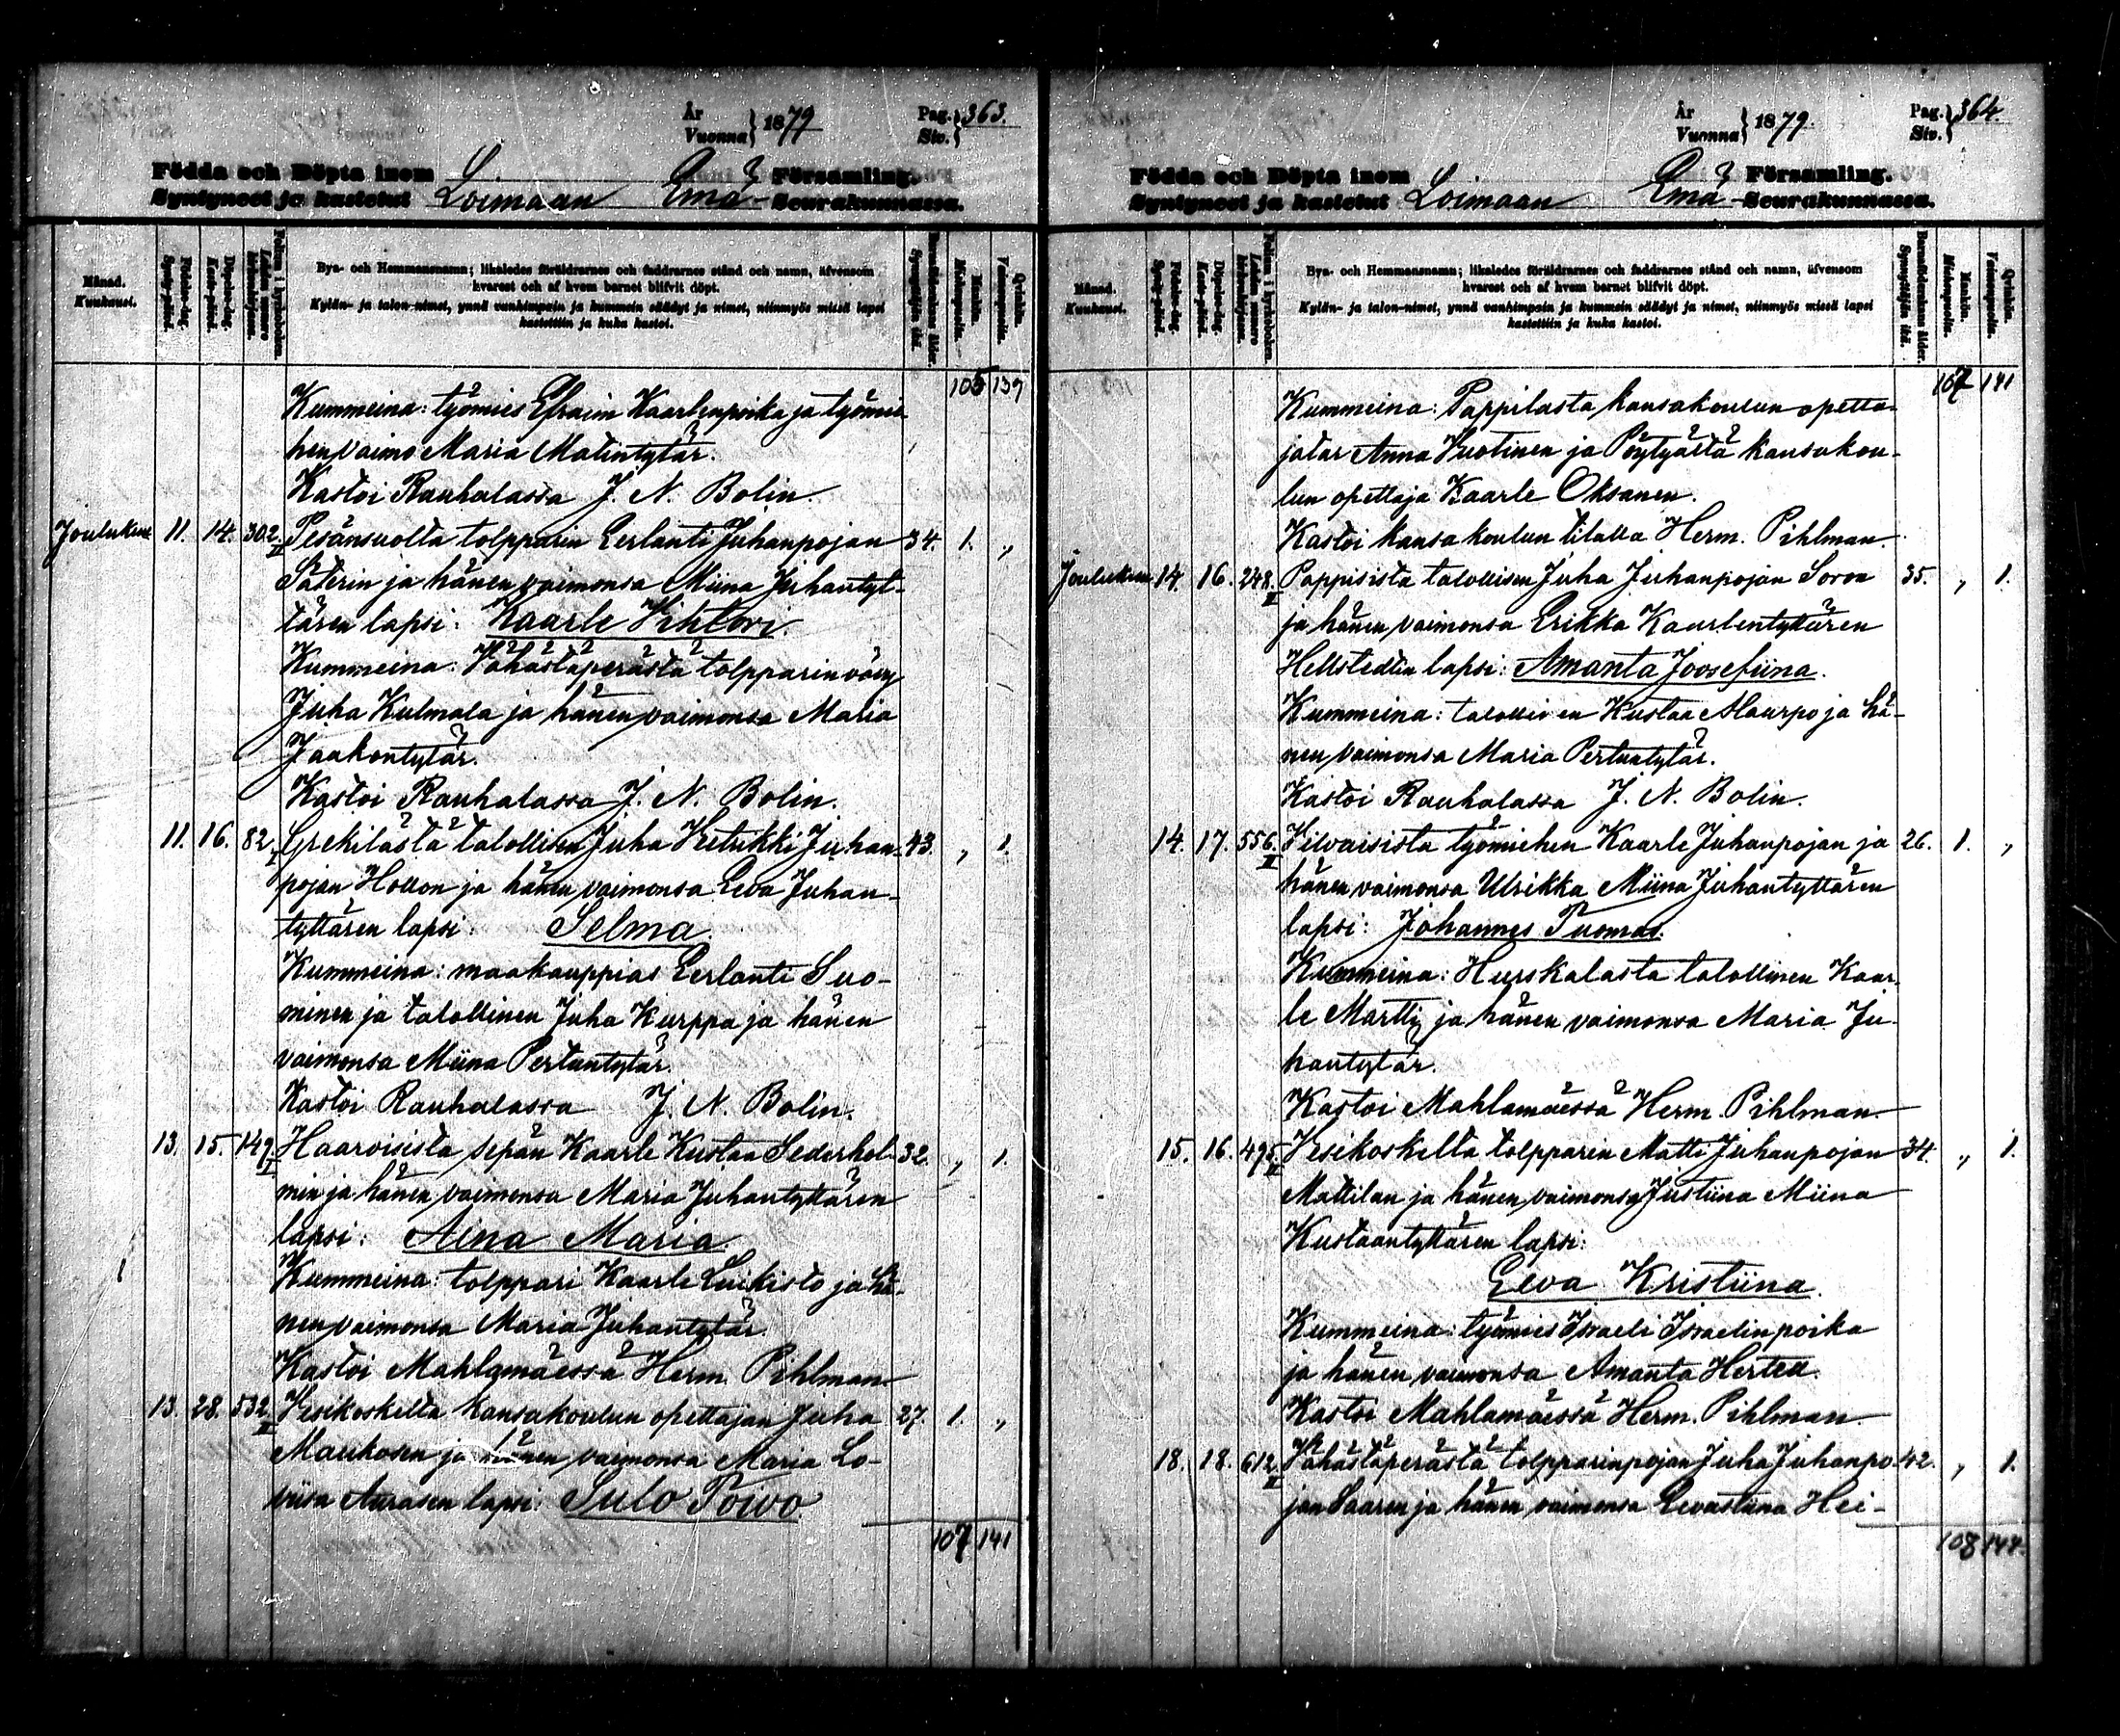 År
Vuonna } 1879
Pag.
Siv. } 363.
Födda och Döpta inom
Syntyneet ja kastetut Loimaan Emä- Församling.
Seurakunnassa.
Månad.
Kuukausi.
Födelse-dag.
Synty-päivä.
Döpelse-dag.
Kaste-päivä.
Folium i kyrkoboken.
Lehden numero kirkonkirjassa.
Bya- och Hemmansnamn; likaledes föräldrarnes och faddrarnes stånd och namn, äfvensom
hvarest och af hvem barnet blifvit döpt.
Kylän- ja talon-nimet, ynnä vanhimpain ja kummein säädyt ja nimet, niinmyös missä lapsi
kastettiin ja kuka kastoi.
Barnföderskans ålder.
Synnyttäjän ikä.
Mankön.
Miehenpuolia.
Qvinkön.
Vaimonpuolia.
105 139
Kummeina: työmies Efraim Kaarlenpoika ja työmie-
hen vaimo Maria Matintytär.
Kastoi Rauhalassa J. N. Bolin.
Joulukuu 11. 14. 302. II Pesänsuolta tolpparin Eerlanti Juhanpojan 34. 1. „
Säterin ja hänen vaimonsa Miina Juhantyt-
tären lapsi: Kaarle Vihtori.
Kummeina: Vähästäperästä tolpparin vävy
Juha Kulmala ja hänen vaimonsa Maria
Jaakontytär.
Kastoi Rauhalassa J. N. Bolin.
11. 16. 82. I Grekilästä talollisen Juha Vetukki Juhan- 43. „ 1.
pojan Hollon ja hänen vaimonsa Eeva Juhan-
tyttären lapsi: Selma.
Kummeina: maakauppias Eerlanti Suo-
minen ja talollinen Juha Kurppa ja hänen
vaimonsa Miina Pertuntytär.
Kastoi Rauhalassa J. N. Bolin.
13. 15. 149. I Haaroisista sepän Kaarle Kustaa Sederhol- 32. „ 1.
min ja hänen vaimonsa Maria Juhantyttären
lapsi: Aina Maria.
Kummeina: tolppari Kaarle Leikisto ja hä-
nen vaimonsa Maria Juhantytär.
Kastoi Mahlamäessä Herm. Pihlman.
13. 28. 532. II Vesikoskelta kansakoulun opettajan Juha 27. 1. „
Maukosen ja hänen vaimonsa Maria Lo-
viisa Aurasen lapsi: Sulo Toivo.
107 141
År
Vuonna } 1879.
Pag.
Siv. } 364.
Födda och Döpta inom
Syntyneet ja kastetut Loimaan Emä- Församling.
Seurakunnassa.
Månad.
Kuukausi.
Födelse-dag.
Synty-päivä.
Döpelse-dag.
Kaste-päivä.
Folium i kyrkoboken.
Lehden numero kirkonkirjassa.
Bya- och Hemmansnamn; likaledes föräldrarnes och faddrarnes stånd och namn, äfvensom
hvarest och af hvem barnet blifvit döpt.
Kylän- ja talon-nimet, ynnä vanhimpain ja kummein säädyt ja nimet, niinmyös missä lapsi
kastettiin ja kuka kastoi.
Barnföderskans ålder.
Synnyttäjän ikä.
Mankön.
Miehenpuolia.
Qvinkön.
Vaimonpuolia.
107 141
Kummeina: Pappilasta kansakoulun opetta-
jatar Anna Vuotinen ja Pöytyältä kansakou-
lun opettaja Kaarle Oksanen.
Kastoi kansakoulun tilalla Herm. Pihlman.
Joulukuu 14. 16. 248. II Pappisista talollisen Juha Juhanpojan Soroa 35. „ 1.
ja hänen vaimonsa Erikka Kaarlentyttären
Hellstedtin lapsi: Amanta Joosefiina.
Kummeina: talollinen Kustaa Alaurpo ja hä-
nen vaimonsa Maria Pertuntytär.
Kastoi Rauhalassa J. N. Bolin.
14. 17. 556. II Vilvaisista työmiehen Kaarle Juhanpojan ja 26. 1. „
hänen vaimonsa Ulrikka Miina Juhantyttären
lapsi: Johannes Tuomas.
Kummeina: Hurskalasta talollinen Kaar-
le Martti ja hänen vaimonsa Maria Ju-
hantytär.
Kastoi Mahlamäessä Herm. Pihlman.
15. 16. 495. II Vesikoskelta tolpparin Matti Juhanpojan 34. „ 1.
Mattilan ja hänen vaimonsa Justiina Miina
Kustaantyttären lapsi:
Eeva Kristiina.
Kummeina: työmies Israeli Israelinpoika
ja hänen vaimonsa Amanta Hertell.
Kastoi Mahlamäessä Herm. Pihlman.
18. 18. 612. II Vähästäperästä tolpparinpojan Juha Juhanpo- 42. „ 1.
jan Saaren ja hänen vaimonsa Eevastiina Hei-
108 144.